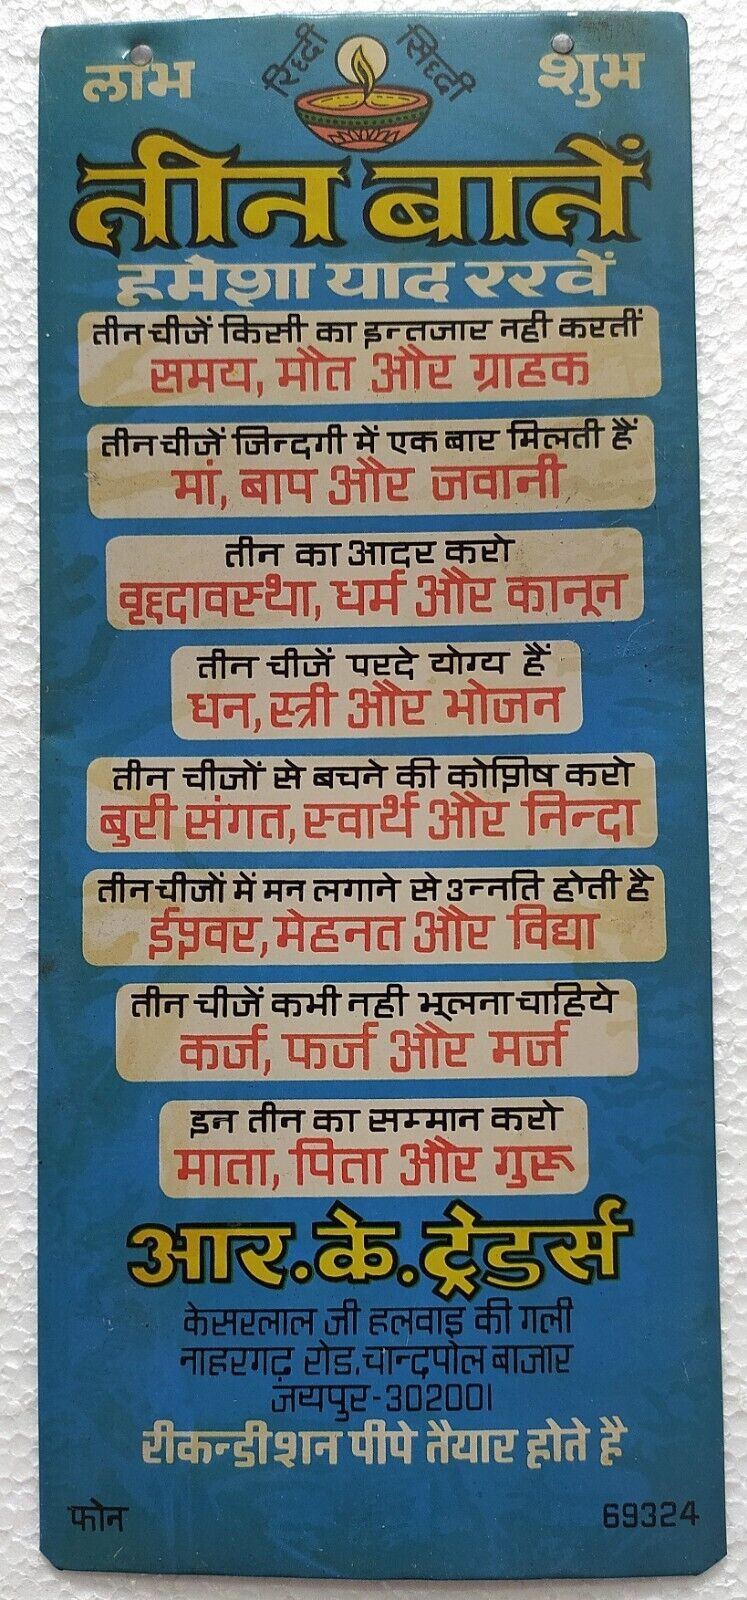 लाभ
रिध्दी सिध्दी
शुभ
तीन बातें
हमेशा याद रखें
तीन चीजें किसी का इन्तजार नही करतीं
समय, मौत और ग्राहक
तीन चीजें जिन्दगी में एक बार मिलती हैं
मां, बाप और जवानी
तीन का आदर करो
वृद्दावस्था, धर्म और कानून
तीन चीजें परदे योग्य हैं
धन, स्त्री और भोजन
तीन चीजों से बचने की कोशिष करो
बुरी संगत, स्वार्थ और निन्दा
तीन चीजों में मन लगाने से उन्नति होती है
ईश्वर, मेहनत और विद्या
तीन चीजें कभी नही भूलना चाहिये
कर्ज, फर्ज और मर्ज
इन तीन का सम्मान करो
माता, पिता और गुरू
आर. के. ट्रेडर्स
केसरलाल जी हलवाइ की गली
नाहरगढ़ रोड, चान्दपोल बाजार
जयपुर-302001
रीकन्डीशन पीपे तैयार होते है
फोन 69324